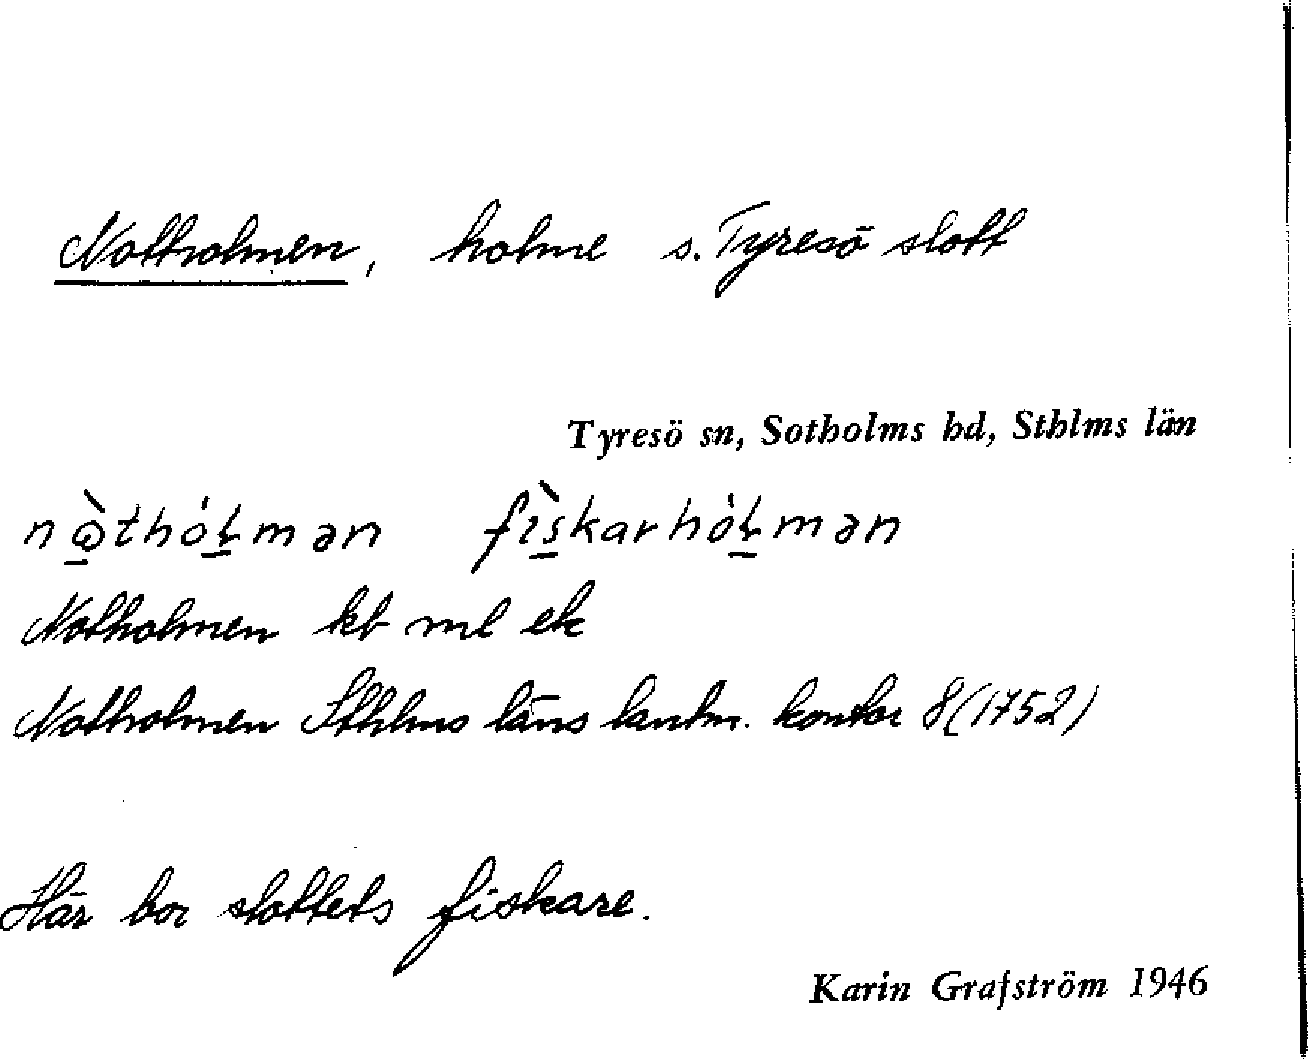 Notholmen, holme s. Tyresö slott
Tyresö sn, Sotholms hd, Sthlms län
nὼ̲thóḷ̲mən fìs̲karhóḷ̲mən
Notholmen kb ml ek
Notholmen Sthlms läns lantm. kontor 8 (1752)
Här bor slottets fiskare.
Karin Grafström 1946